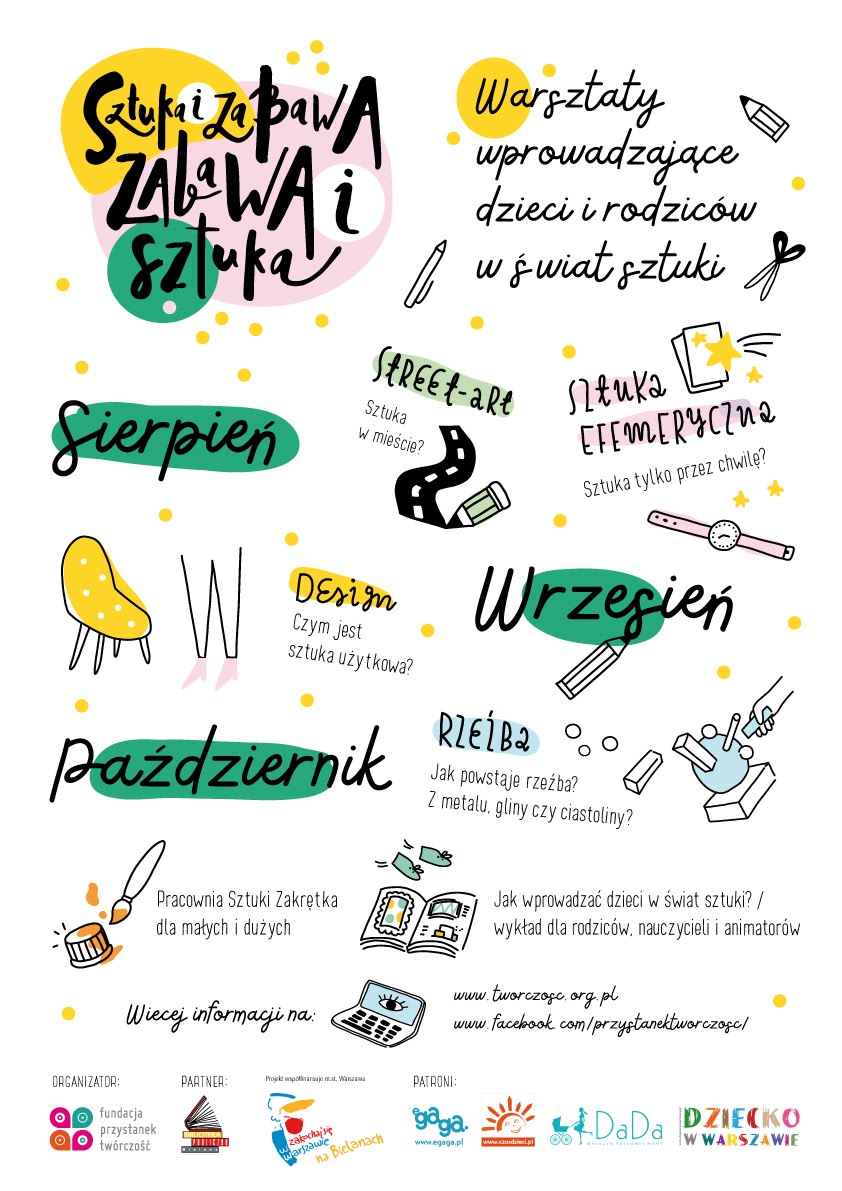 Sztuka i zabawa
zabawa i
sztuka
Warsztaty
wprowadzające
dzieci i rodziców
w świat sztuki
Sierpień
Street-art
Sztuka
w mieście?
Sztuka
efemeryczna
Sztuka tylko przez chwilę?
Design
Czym jest
sztuka użytkowa?
Wrzesień
Październik
Rzeźba
Jak powstaje rzeźba?
Z metalu, gliny czy ciastoliny?
Pracownia Sztuki Zakrętka
dla małych i dużych
Jak wprowadzać dzieci w świat sztuki? /
wykład dla rodziców, nauczycieli i animatorów
Wiecej informacji na:
www.tworczosc.org.pl
www.facebook.com/przystanektworczosc/
ORGANIZATOR:
fundacja
przystanek
twórczość
PARTNER:
BIBLIOTEKA
PUBLICZNA
Projekt współfinansuje m.st. Warszawa
zakochaj się
w Warszawie
na Bielanach
PATRONI:
egaga.
www.egaga.pl
www.czasdzieci.pl
DaDa
DZIECKO
W WARSZAWIE